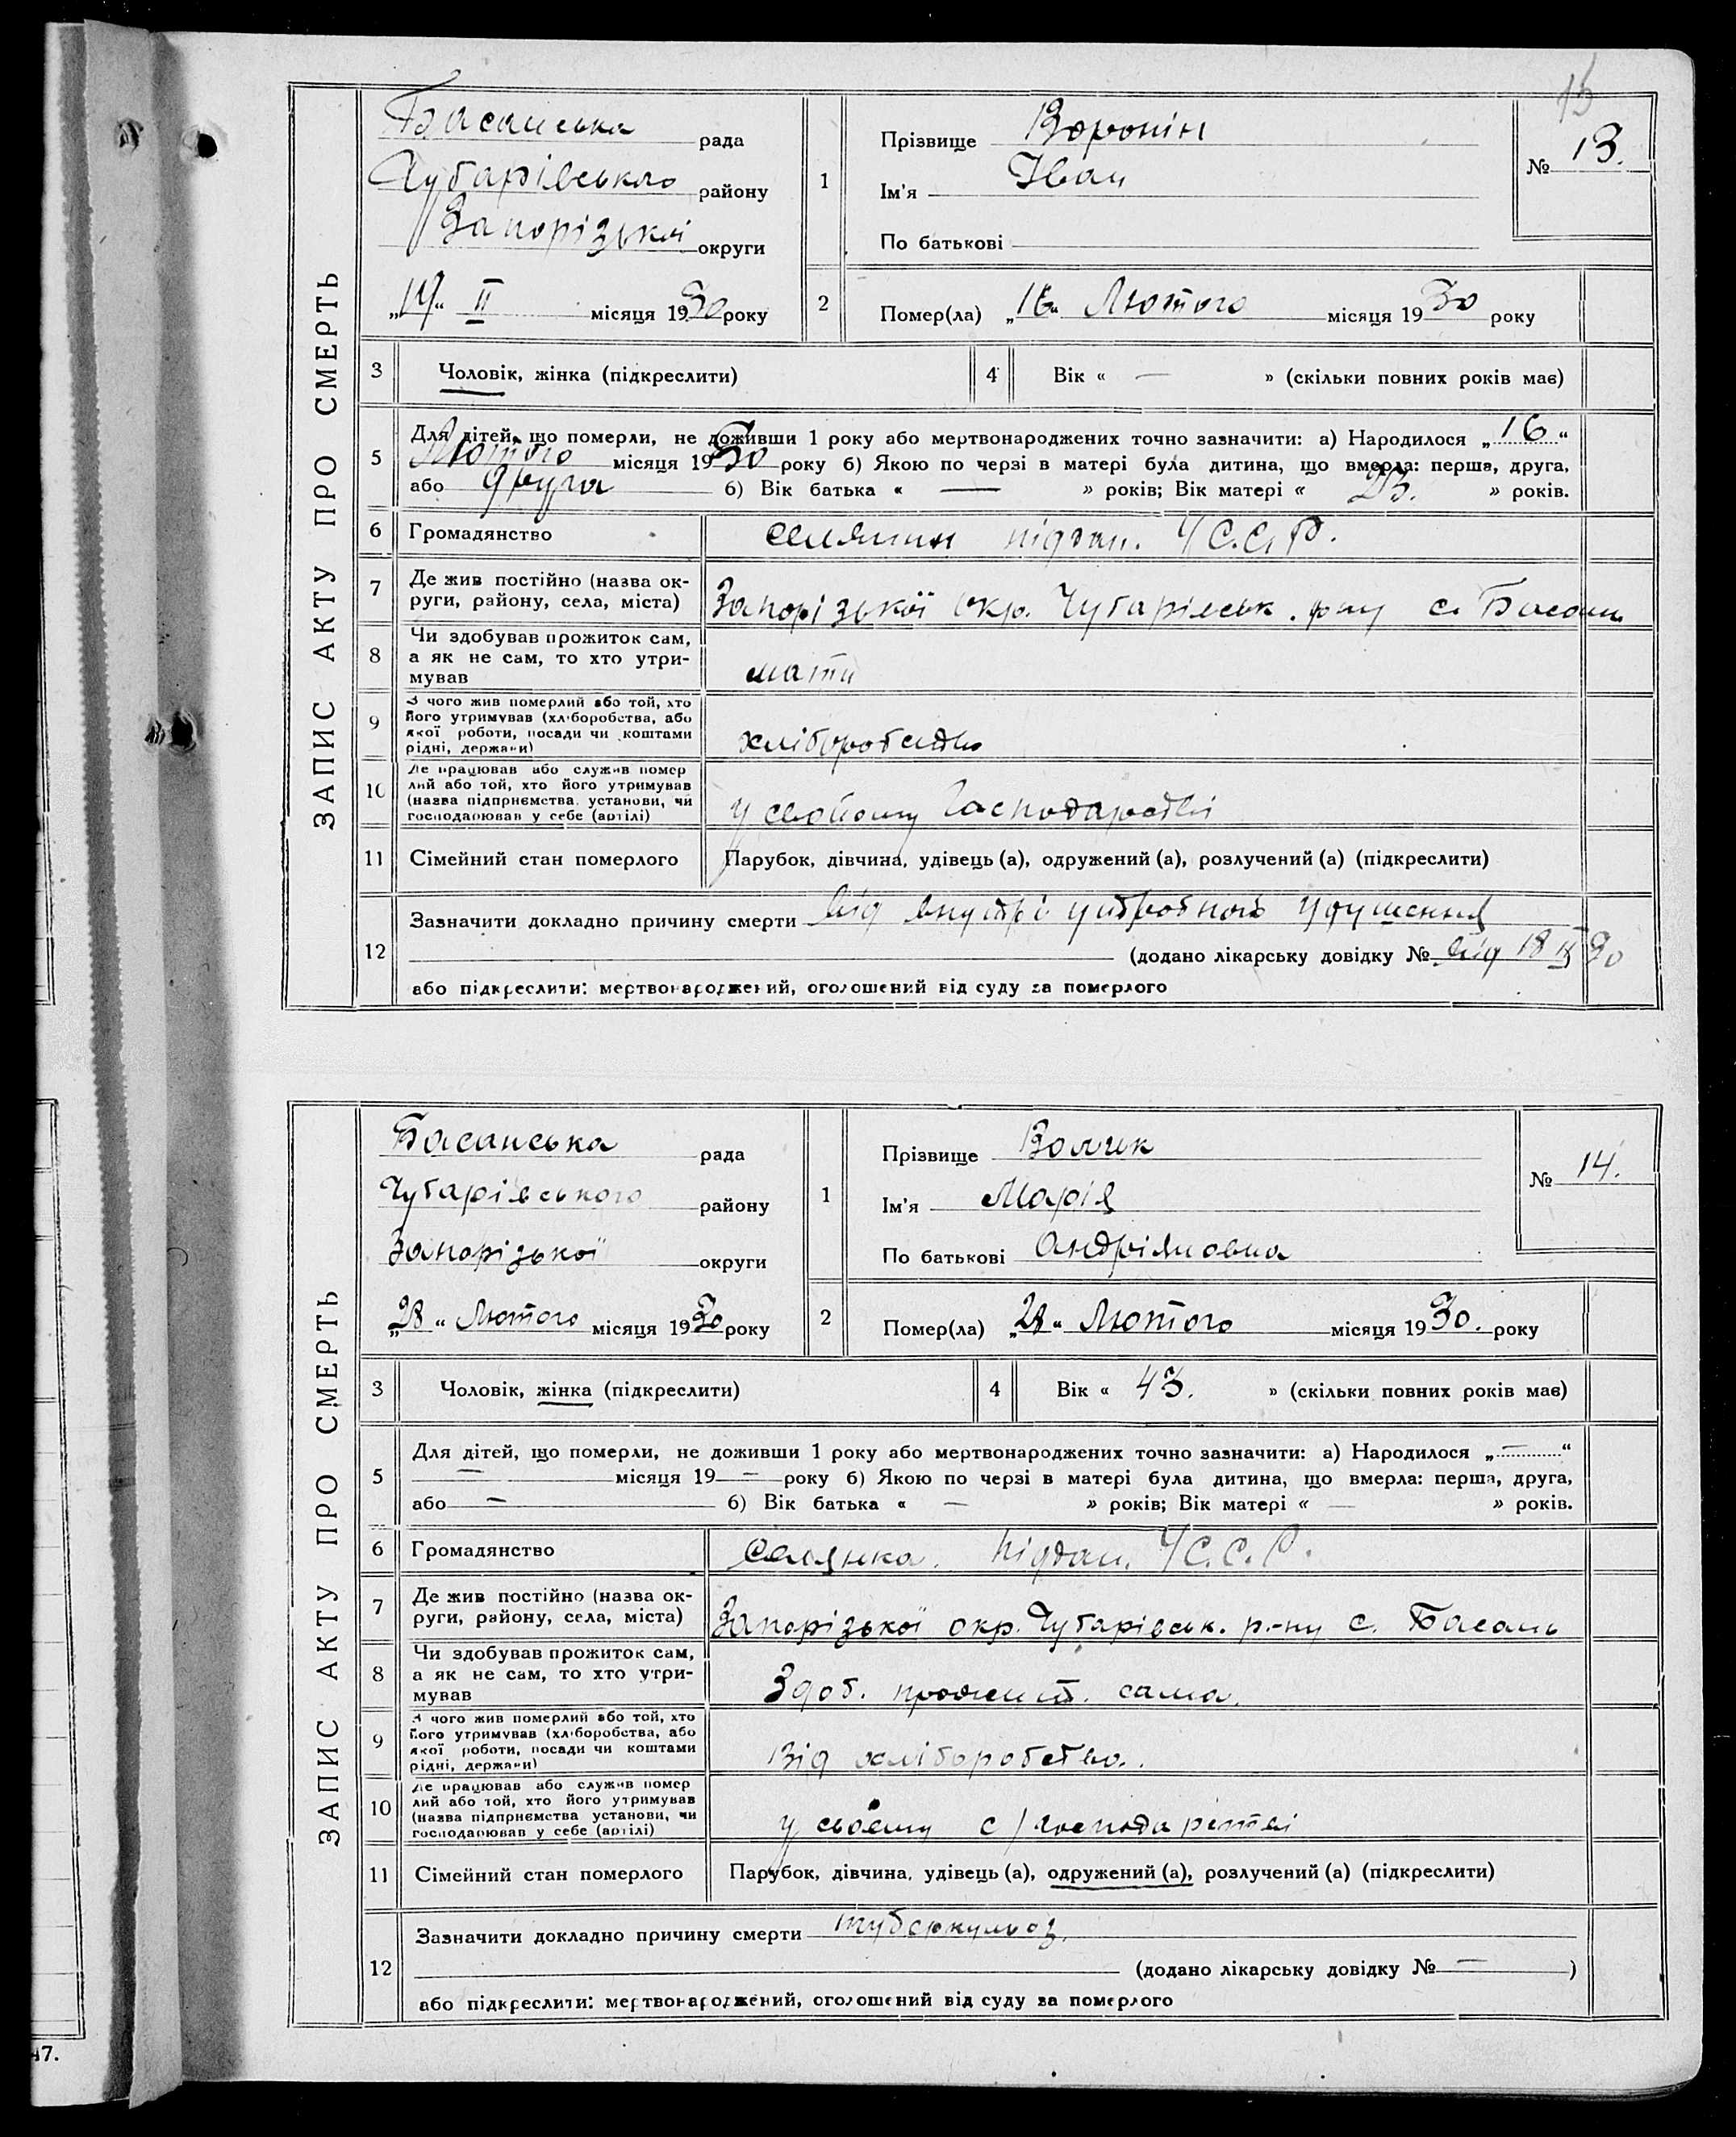 15
ЗАПИС АКТУ ПРО СМЕРТЬ
Басанська рада
Чубарівського району
Запорізької округи
„19“ II місяця 1930 року
1
Прізвище Воронін
Ім'я Іван
По батькові
№ 13.
2
Помер(ла) „16“ Лютого місяця 1930 року
3 Чоловік, жінка (підкреслити)
4 Вік « — » (скільки повних років має)
5 Для дітей, що померли, не доживши 1 року або мертвонароджених точно зазначити: а) Народилося „16“
Лютого місяця 1930 року б) Якою по черзі в матері була дитина, що вмерла: перша, друга,
або друга б) Вік батька « — » років; Вік матері « 23. » років.
6 Громадянство селянин підан. УС.С.Р.
7 Де жив постійно (назва ок-
руги, району, села, міста) Запорізької окр. Чубарівськ. р-ну с. Басань
8 Чи здобував прожиток сам,
а як не сам, то хто утри-
мував мати
9 З чого жив померлий або той, хто
його утримував (хліборобства, або
якої роботи, посади чи коштами
рідні, держави) хліборобство
10 Де працював або служив помер
лий або той, хто його утримував
(назва підприємства, установи, чи
господарював у себе (артілі) у свойому господарстві
11 Сімейний стан померлого Парубок, дівчина, удівець (а), одружений (а), розлучений (а) (підкреслити)
12 Зазначити докладно причину смерти від внутрі утробного удушення
(додано лікарську довідку № від 18 II 30
або підкреслити: мертвонароджений, оголошений від суду за померлого
ЗАПИС АКТУ ПРО СМЕРТЬ
Басанська рада
Чубарівського району
Запорізької округи
„28“ Лютого місяця 1930 року
1
Прізвище Волчек
Ім'я Марія
По батькові Андріяновна
№ 14.
2
Помер(ла) „28“ Лютого місяця 1930. року
3 Чоловік, жінка (підкреслити)
4 Вік « 43. » (скільки повних років має)
5 Для дітей, що померли, не доживши 1 року або мертвонароджених точно зазначити: а) Народилося „—“
— місяця 19 — року б) Якою по черзі в матері була дитина, що вмерла: перша, друга,
або — б) Вік батька « — » років; Вік матері « — » років.
6 Громадянство селянка. підан. УС.С.Р.
7 Де жив постійно (назва ок-
руги, району, села, міста) Запорізької окр. Чубарівськ. р-ну с. Басань
8 Чи здобував прожиток сам,
а як не сам, то хто утри-
мував Здоб. прожит. сама.
9 З чого жив померлий або той, хто
його утримував (хліборобства, або
якої роботи, посади чи коштами
рідні, держави) Від хліборобства.
10 Де працював або служив помер
лий або той, хто його утримував
(назва підприємства установи, чи
господарював у себе (артілі) у своєму с/господарстві
11 Сімейний стан померлого Парубок, дівчина, удівець (а), одружений (а), розлучений (а) (підкреслити)
12 Зазначити докладно причину смерти туберкульоз.
(додано лікарську довідку № — )
або підкреслити: мертвонароджений, оголошений від суду за померлого
47.